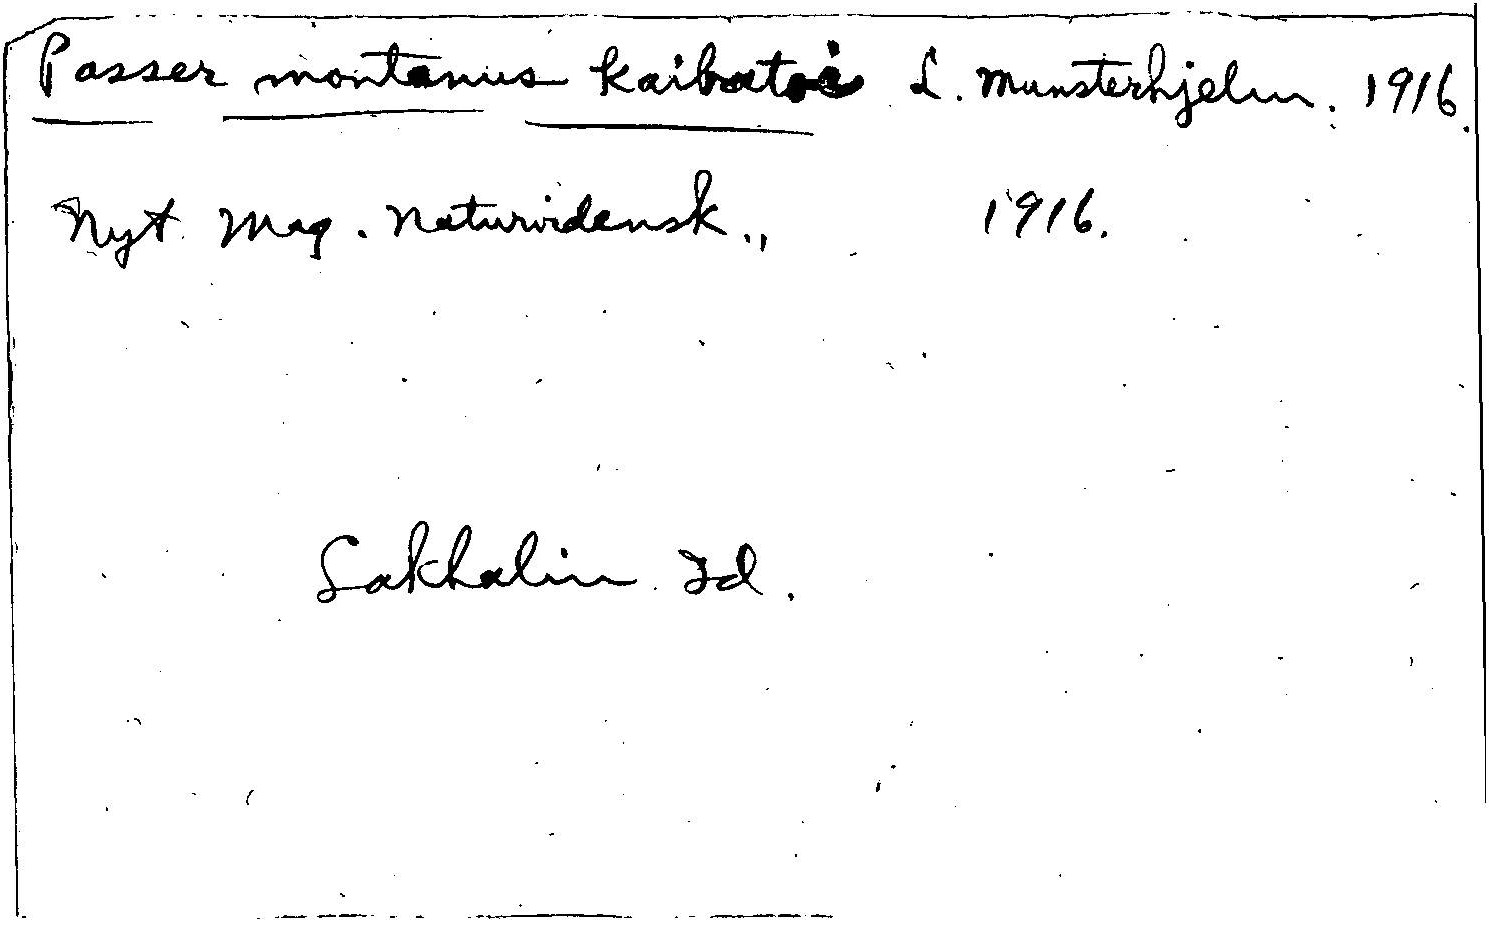 Passer montanus kaibatoi L. Munsterhjelm. 1916.
Nyt Mag. Naturvidensk., 1916.
Sakhalin Id.